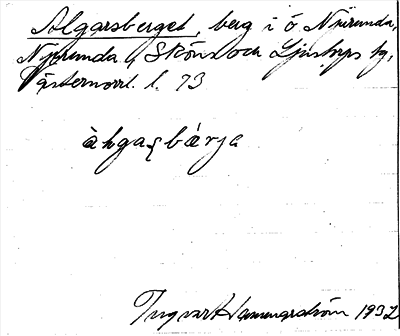 Algarsberget, berg i ö Njurunda,
Njurunda, Sköns och Ljustorps tg,
Västernorrl. l. 73
àhgaʂbárja
Ingvar Hammarström 1932